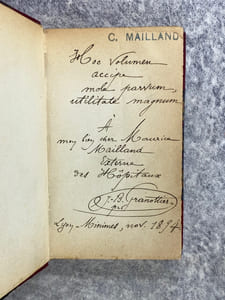 C. MAILLAND
Hoc volumen
accipe
mole parvum,
utilitate magnum
À
mon bien cher Maurice
Mailland
Externe
des Hôpitaux
J-B. Granottier
Lyon Minimes, nov. 1894